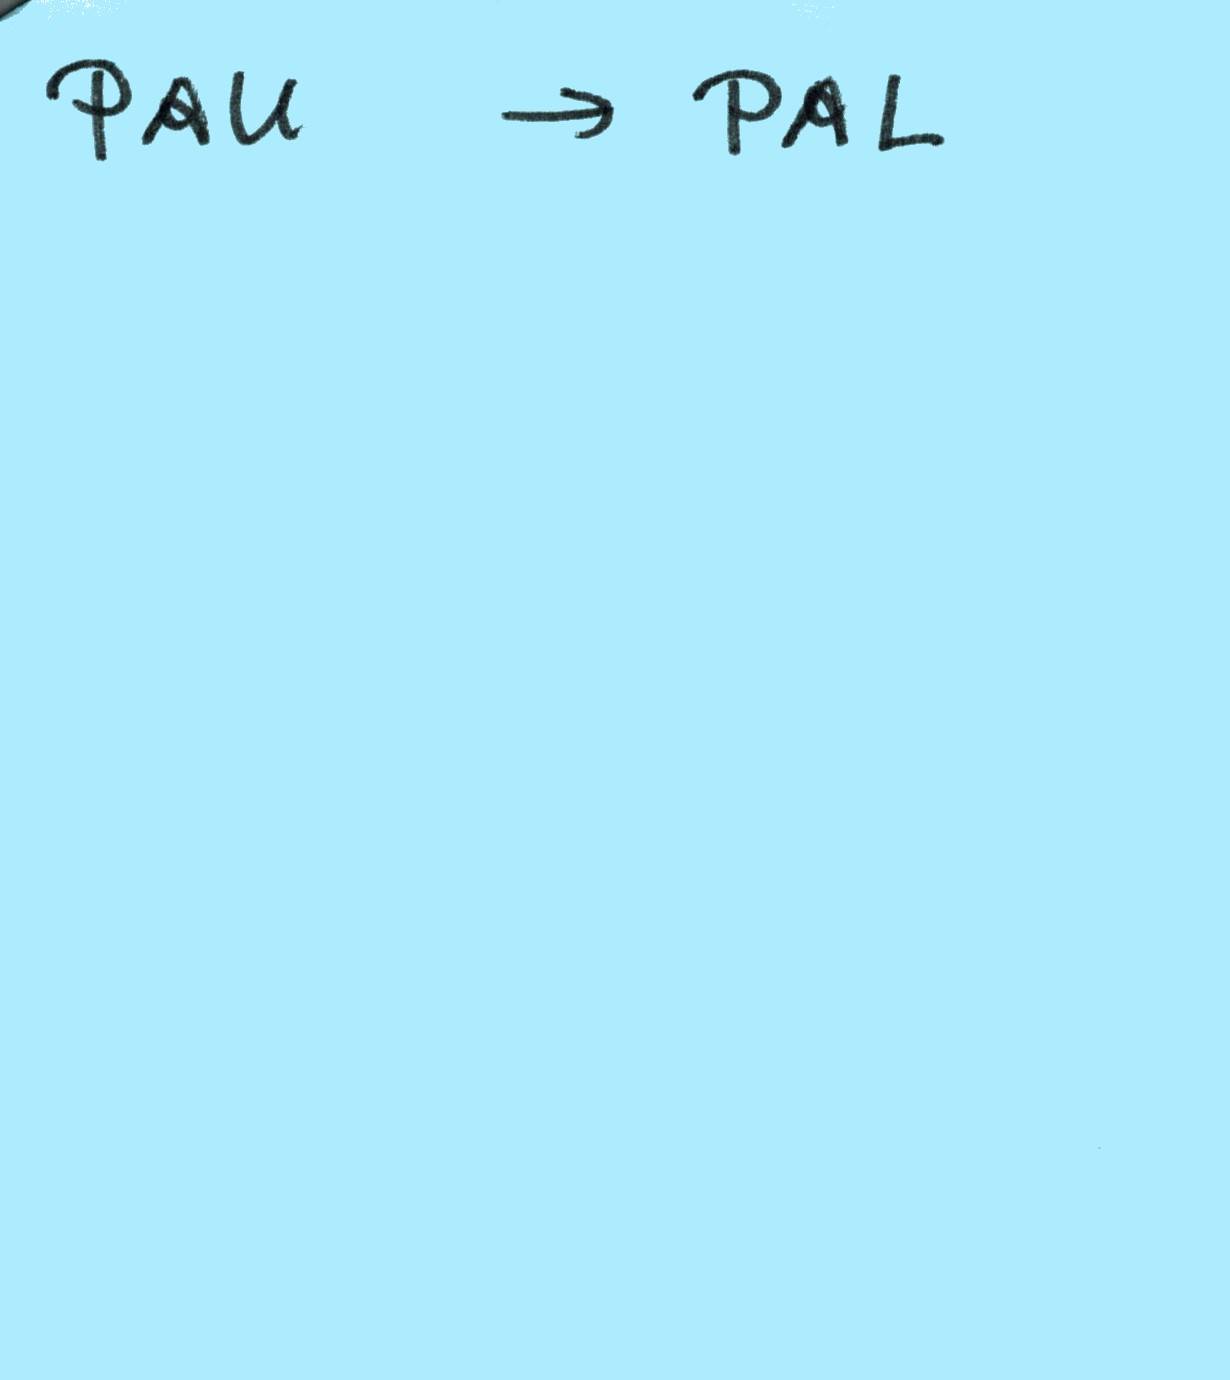 PAU → PAL